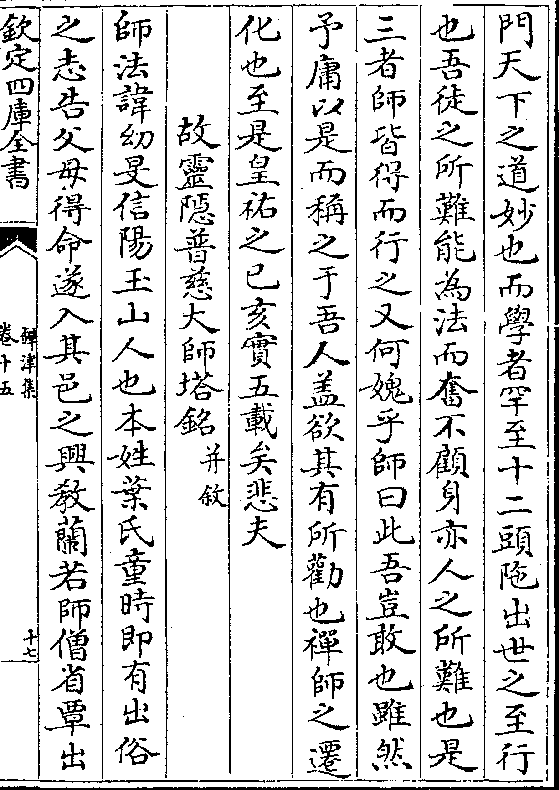 門天下之道妙也而學者罕至十二頭陁出世之至行
也吾徒之所難能為法而奮不顧身亦人之所難也是
三者師皆得而行之又何媿乎師曰此吾豈敢也雖然
予庸以是而稱之于吾人盖欲其有所勸也禪師之遷
化也至是皇祐之已亥實五載矣悲夫
故靈隱普慈大師塔銘并敘
師法諱幼旻信陽玉山人也本姓葉氏童時即有出俗
之志告父母得命遂入其邑之興教蘭若師僧省覃出
欽定四庫全書
鐔津集
卷十五
十七